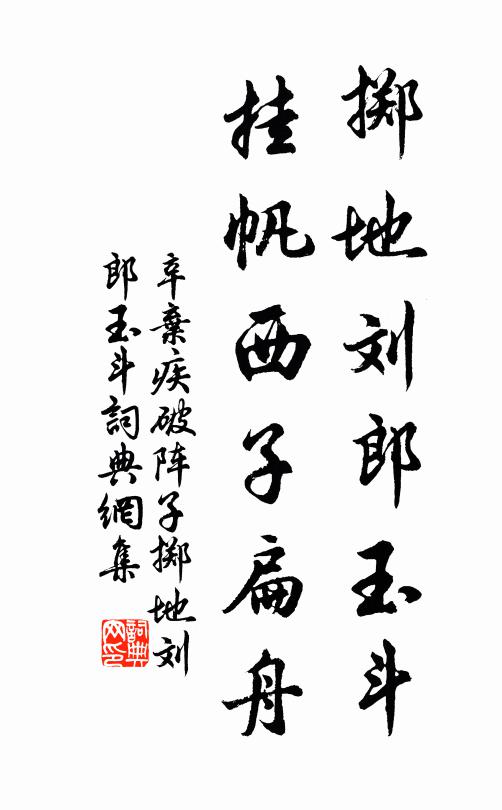 掷地刘郎玉斗
挂帆西子扁舟
辛棄疾破阵子掷地刘
郎玉斗詞典網集
詞典
网印